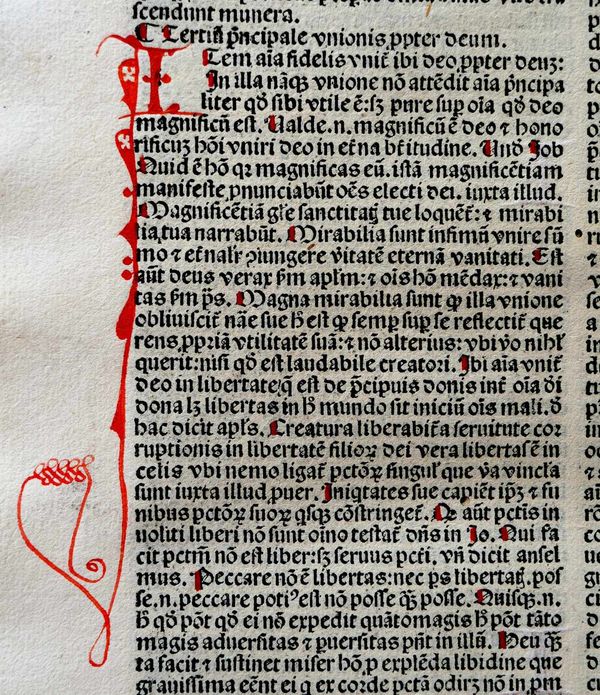 scendunt munera.
₵ Tertiū p̄ncipale vnionis ꝓpter deum.
ITem aīa fidelis vnit᷑ ibi deo ꝓpter deuꝫ:
In illa nāqꝫ vnione nō attēdit aīa p̄ncipa
liter qḋ sibi vtile ē: sꝫ p̄ire suꝑ oīa qḋ deo
magnificū est. Ualde.n. magnificū ē deo ⁊ hono
rificuꝫ hoı̄i vniri deo in et̄na bt̄itudine. Un̄ Job
Quid ē hō qꝛ magnificas eū. istā magnificētiam
manifeste ꝓnunciabūt oēs electi dei. iuxta illud.
Magnificētiā gl̄ie sanctitatꝭ tue loquēt᷑: ⁊ mirabi
lia tua narrabūt. Mirabilia sunt infimū vnire sū
mo ⁊ et̄nalr̄ ꝯiungere v̄itatē eternā vanitati. Est
aūt deus verax ẜm apl̄m: ⁊ oīs hō mēdax: ⁊ vani
tas ẜm p̄s. Magna mirabilia sunt ꝙ illa vnione
obliuiscit᷑ nāe sue h̄ est ꝙ semꝑ suꝑ se reflectit᷑ que
rens ꝓpriā vtilitatē suā: ⁊ nō alterius: vbi v̄o nihil
querit: nisi qḋ est laudabile creatori. Ibi aīa vnit᷑
deo in libertate, q̄ est de p̄cipuis donis int᷑ oīa di
dona lꝫ libertas in h̄ mundo sit iniciū oīs mali. d̄
hac dicit apl̄s. Creatura liberabit᷑ a seruitute cor
ruptionis in libertatē filioꝝ dei vera libertas ē in
celis vbi nemo ligat᷑ pctōꝝ singul̓ que v̄a vincla
sunt iuxta illud ꝓuer. Iniqtates sue capiēt ip̄ꝫ ⁊ fu
nibus pctōꝝ suoꝝ qsqꝫ cōstringet᷑. Qꝛ aūt pctīs in
uoluti liberi nō sunt oīno testat᷑ dn̄s in Jo. Qui fa
cit pctm̄ nō est liber: sꝫ seruus pctī. vn̄ dicit ansel
mus. Peccare nō ē libertas: nec ꝑs libertatꝭ. pos
se.n. peccare poti᷒ est nō posse qꝫ̄ posse. Quisqꝫ.n.
h̄ qḋ pōt qḋ ei nō expedit quātomagis h̄ pōt tāto
magis aduersitas ⁊ ꝑuersitas pn̄t in illū. Heu qꝫ̄
ta facit ⁊ sustinet miser hō ꝓ explēda libidine que
grauissima eēnt ei q̄ ex corde pctā odirꝫ nō in pm